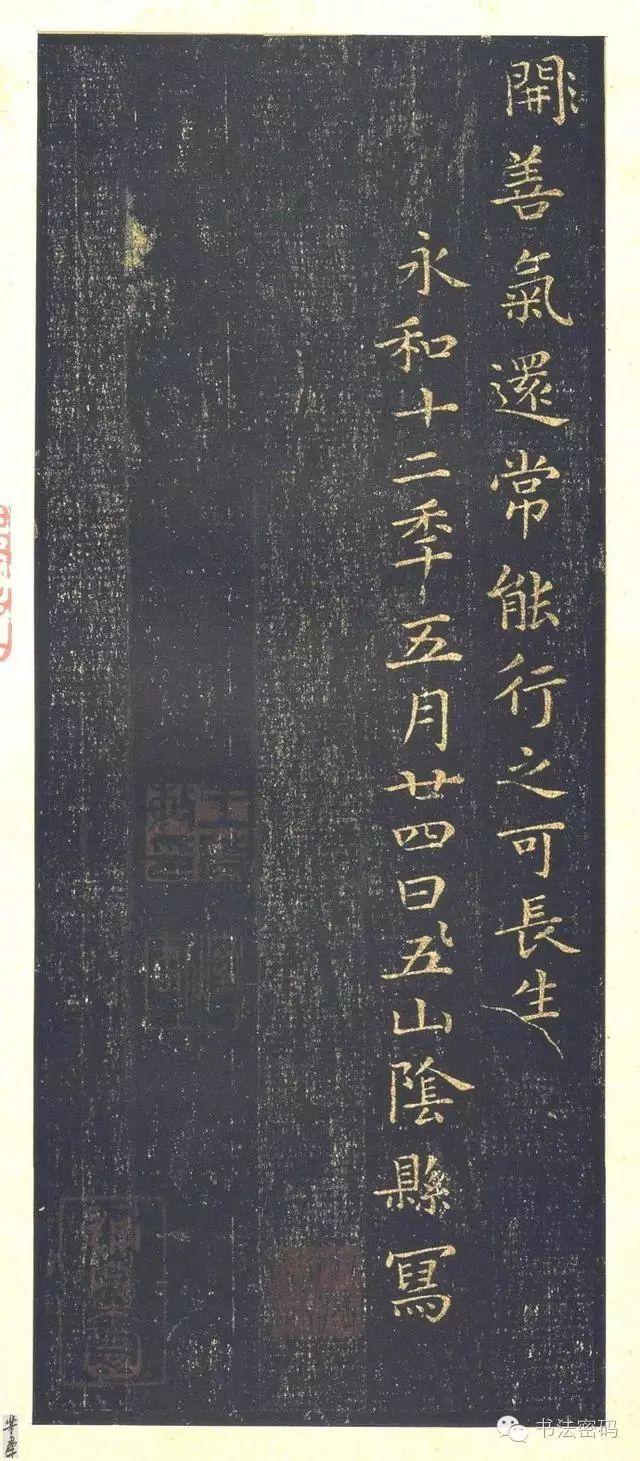 開善氣還常能行之可長生
永和十二秊五月廿四日五山陰縣寫
书法密码